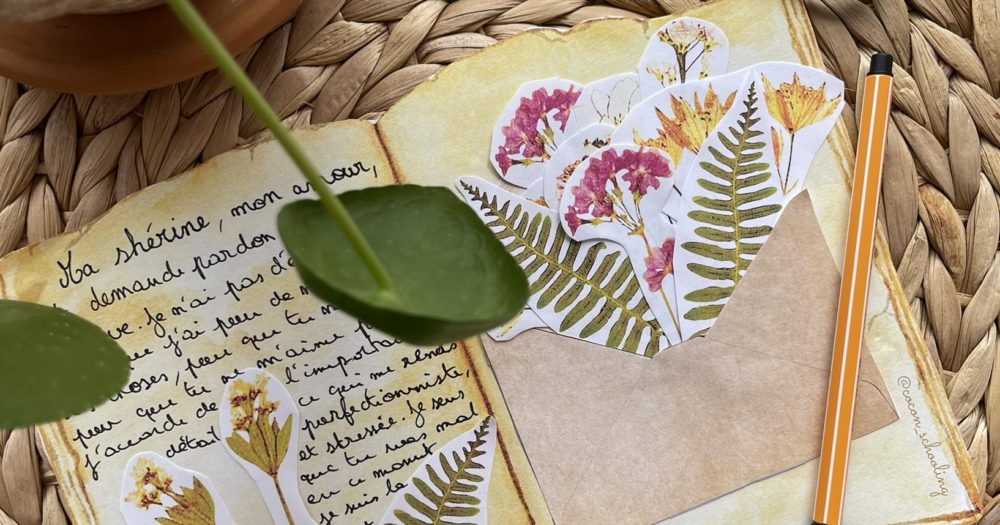 Ma shérine, mon amour,
demande pardon
ve. Je n'ai pas d'
que j'ai peur de m
choses, peur que tu m
peur que tu ne m'aime p
j'accorde de l'importan
détail ce qui me rends
perfectionniste,
et stressée. Je sens
que tu vas mal
en ce moment
je suis la
@cocon_schooling